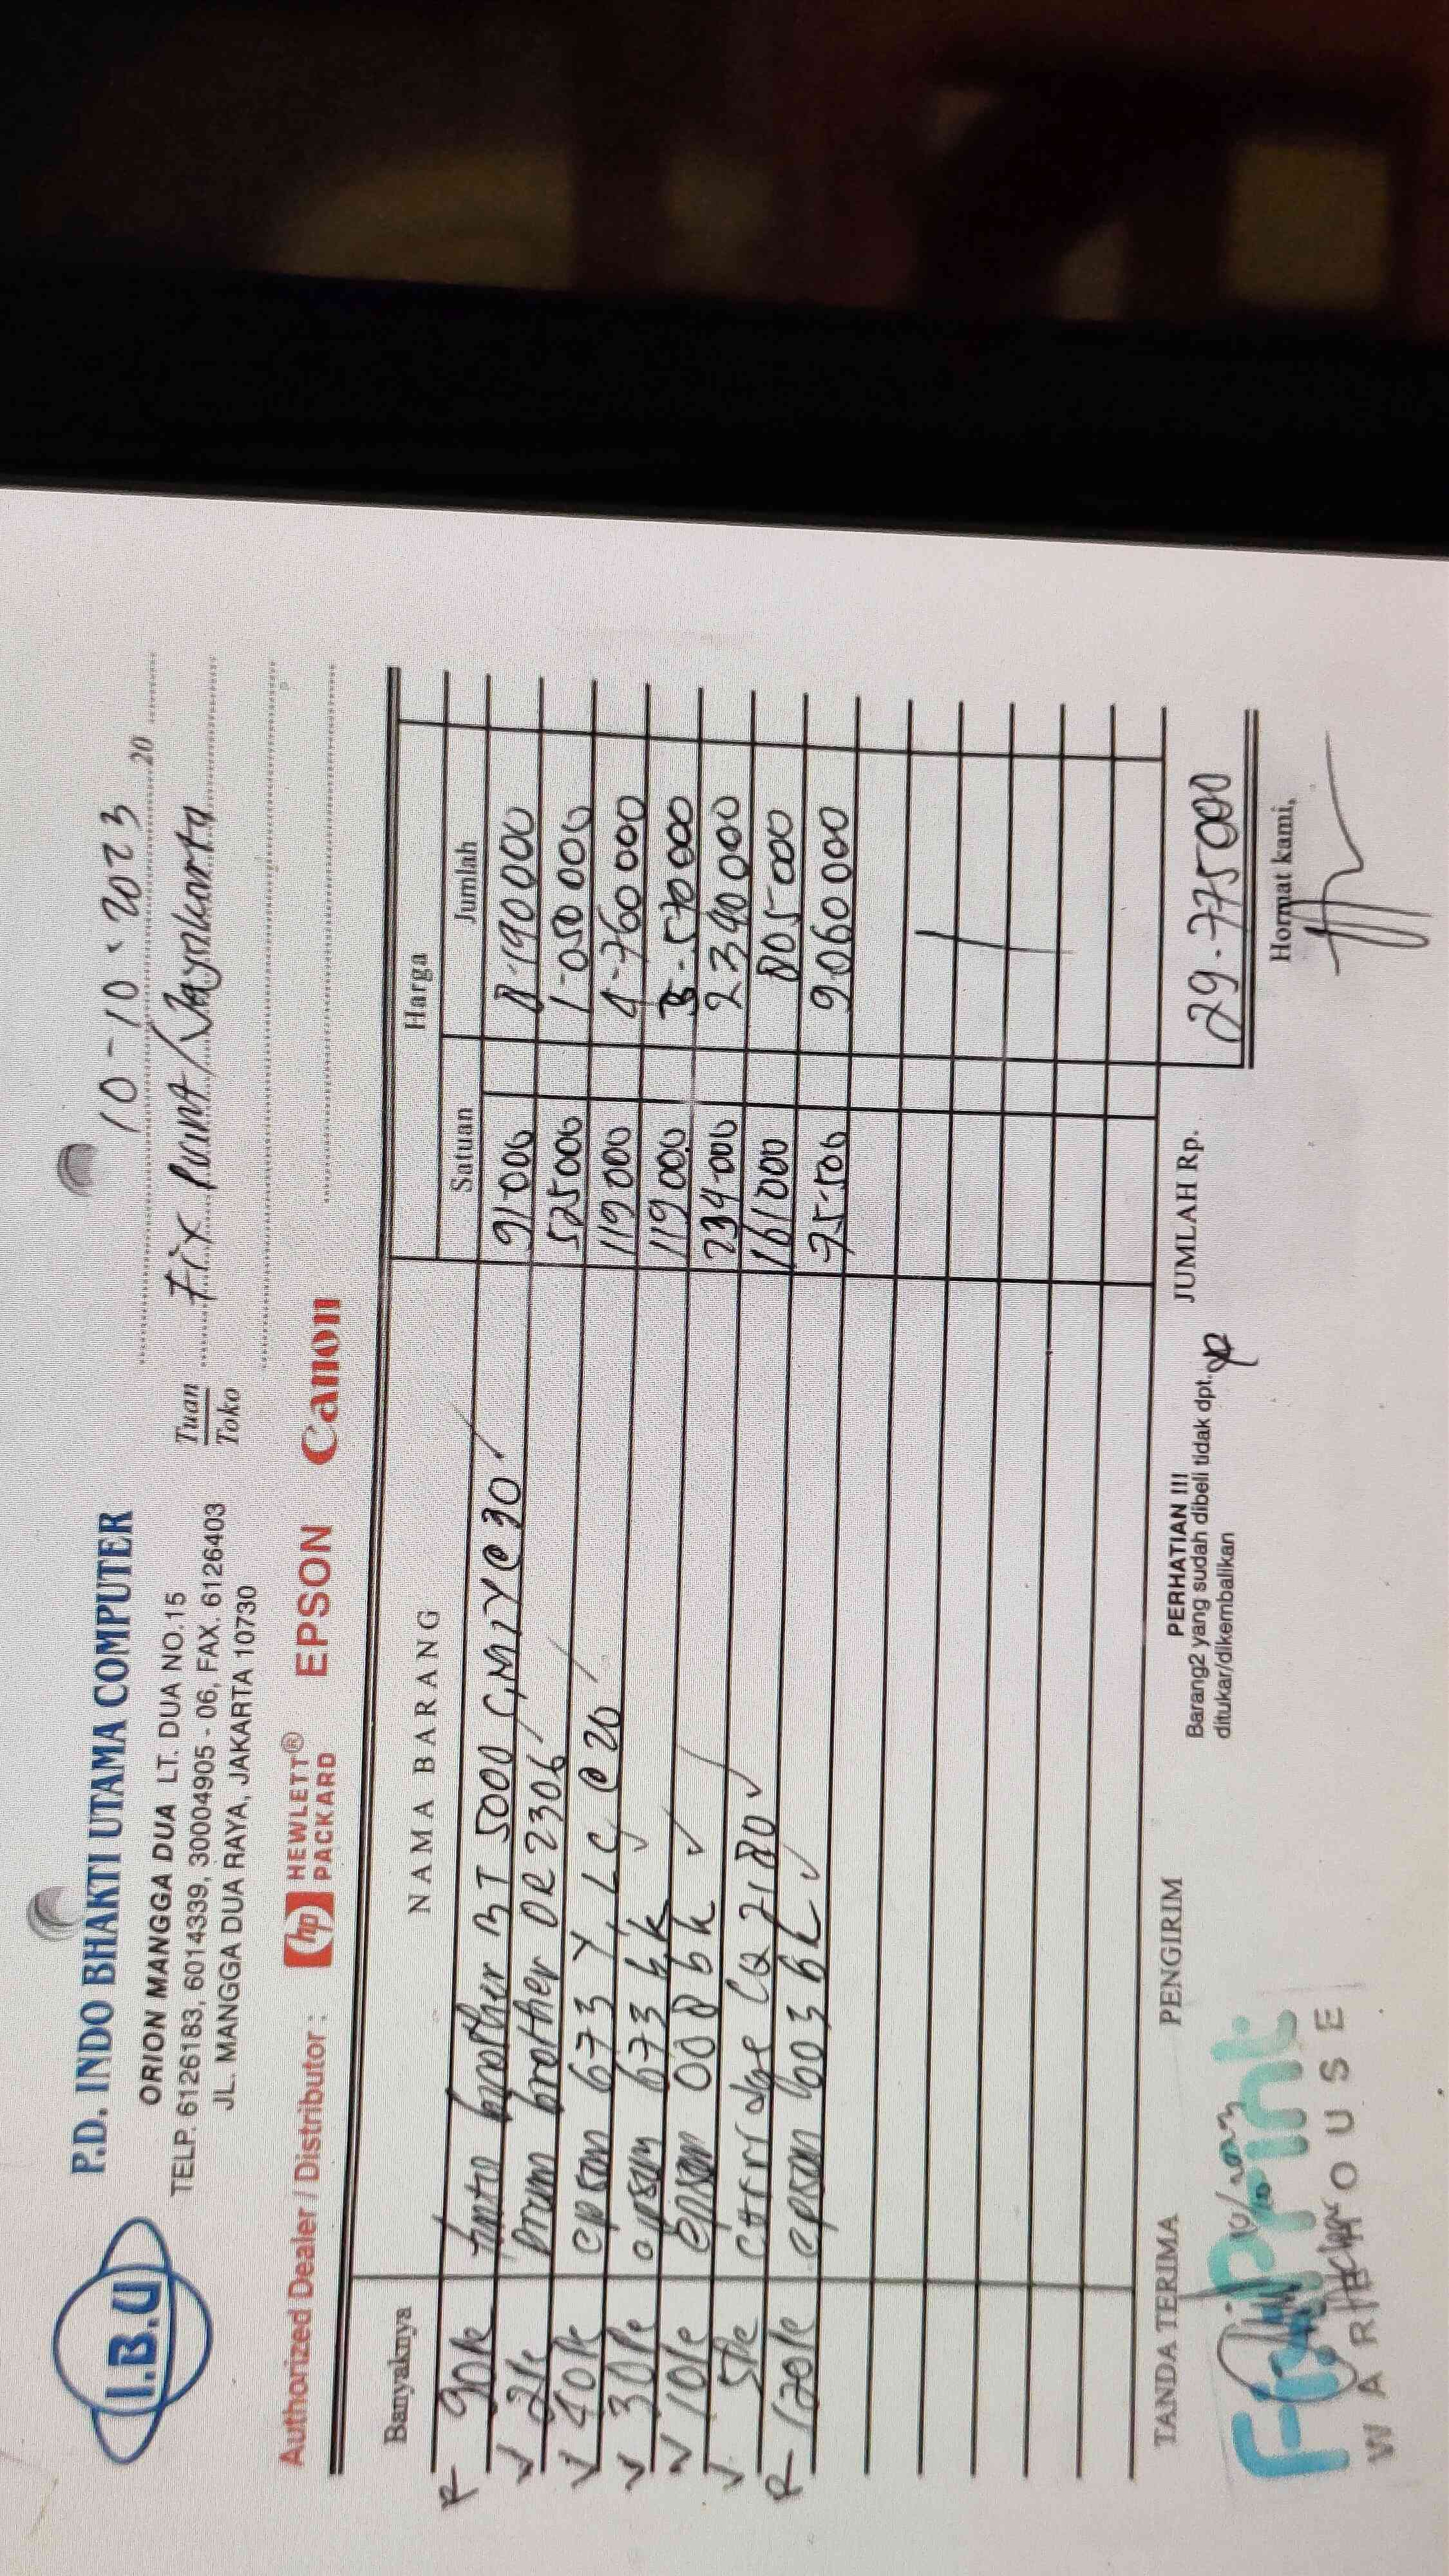 I.B.U
P.D. INDO BHAKTI UTAMA COMPUTER
ORION MANGGA DUA LT. DUA NO.15
TELP. 6126183, 6014339, 30004905 - 06, FAX. 6126403
JL. MANGGA DUA RAYA, JAKARTA 10730
10-10-2023 20
Tuan
Toko
Fix Print / Jayakarta
Authorized Dealer / Distributor :
hp HEWLETT®
PACKARD
EPSON
Canon
Banyaknya NAMA BARANG Harga
Satuan Jumlah
90 tinta brother BT 5000 C,M,Y @ 30 91.000 8.190 000
2 Drum brother DR 2306 525000 1.050 000
40 epson 673 Y, LC @ 20 119 000 4.760 000
30 epson 673 bk 119 000 3.570 000
10 epson 008 bk 234.000 2340 000
5 Cartridge LQ 2180 161000 805000
120 epson 003 bk 75.500 9.060 000
TANDA TERIMA
PENGIRIM
PERHATIAN !!!
Barang2 yang sudah dibeli tidak dpt.
ditukar/dikembalikan
JUMLAH Rp. 29.775000
Hormat kami,
FixPrint
WAREHOUSE